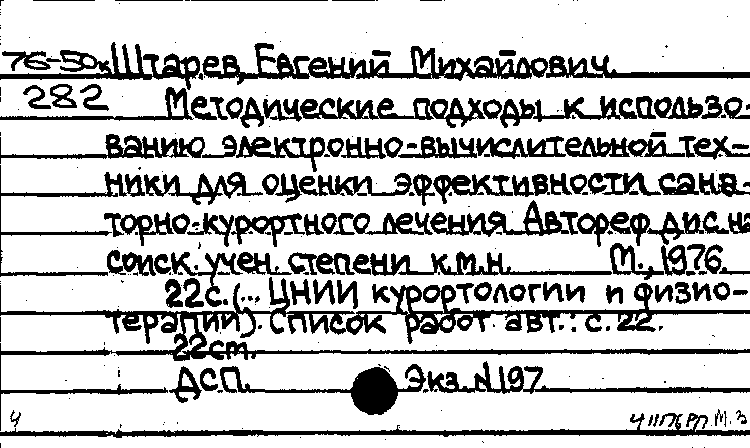 76-50к Штарев, Евгений Михайлович.
282 Методические подходы к использо-
ванию электронно-вычислительной тех-
ники для оценки эффективности сана-
торно-курортного лечения Автореф дис. на
соиск. учен. степени к.м.н. М., 1976.
22с. (... ЦНИИ курортологии и физио-
терапии). Список работ авт.: с. 22.
22cm.
ДСП. Экз. N 197.
Ч М.З